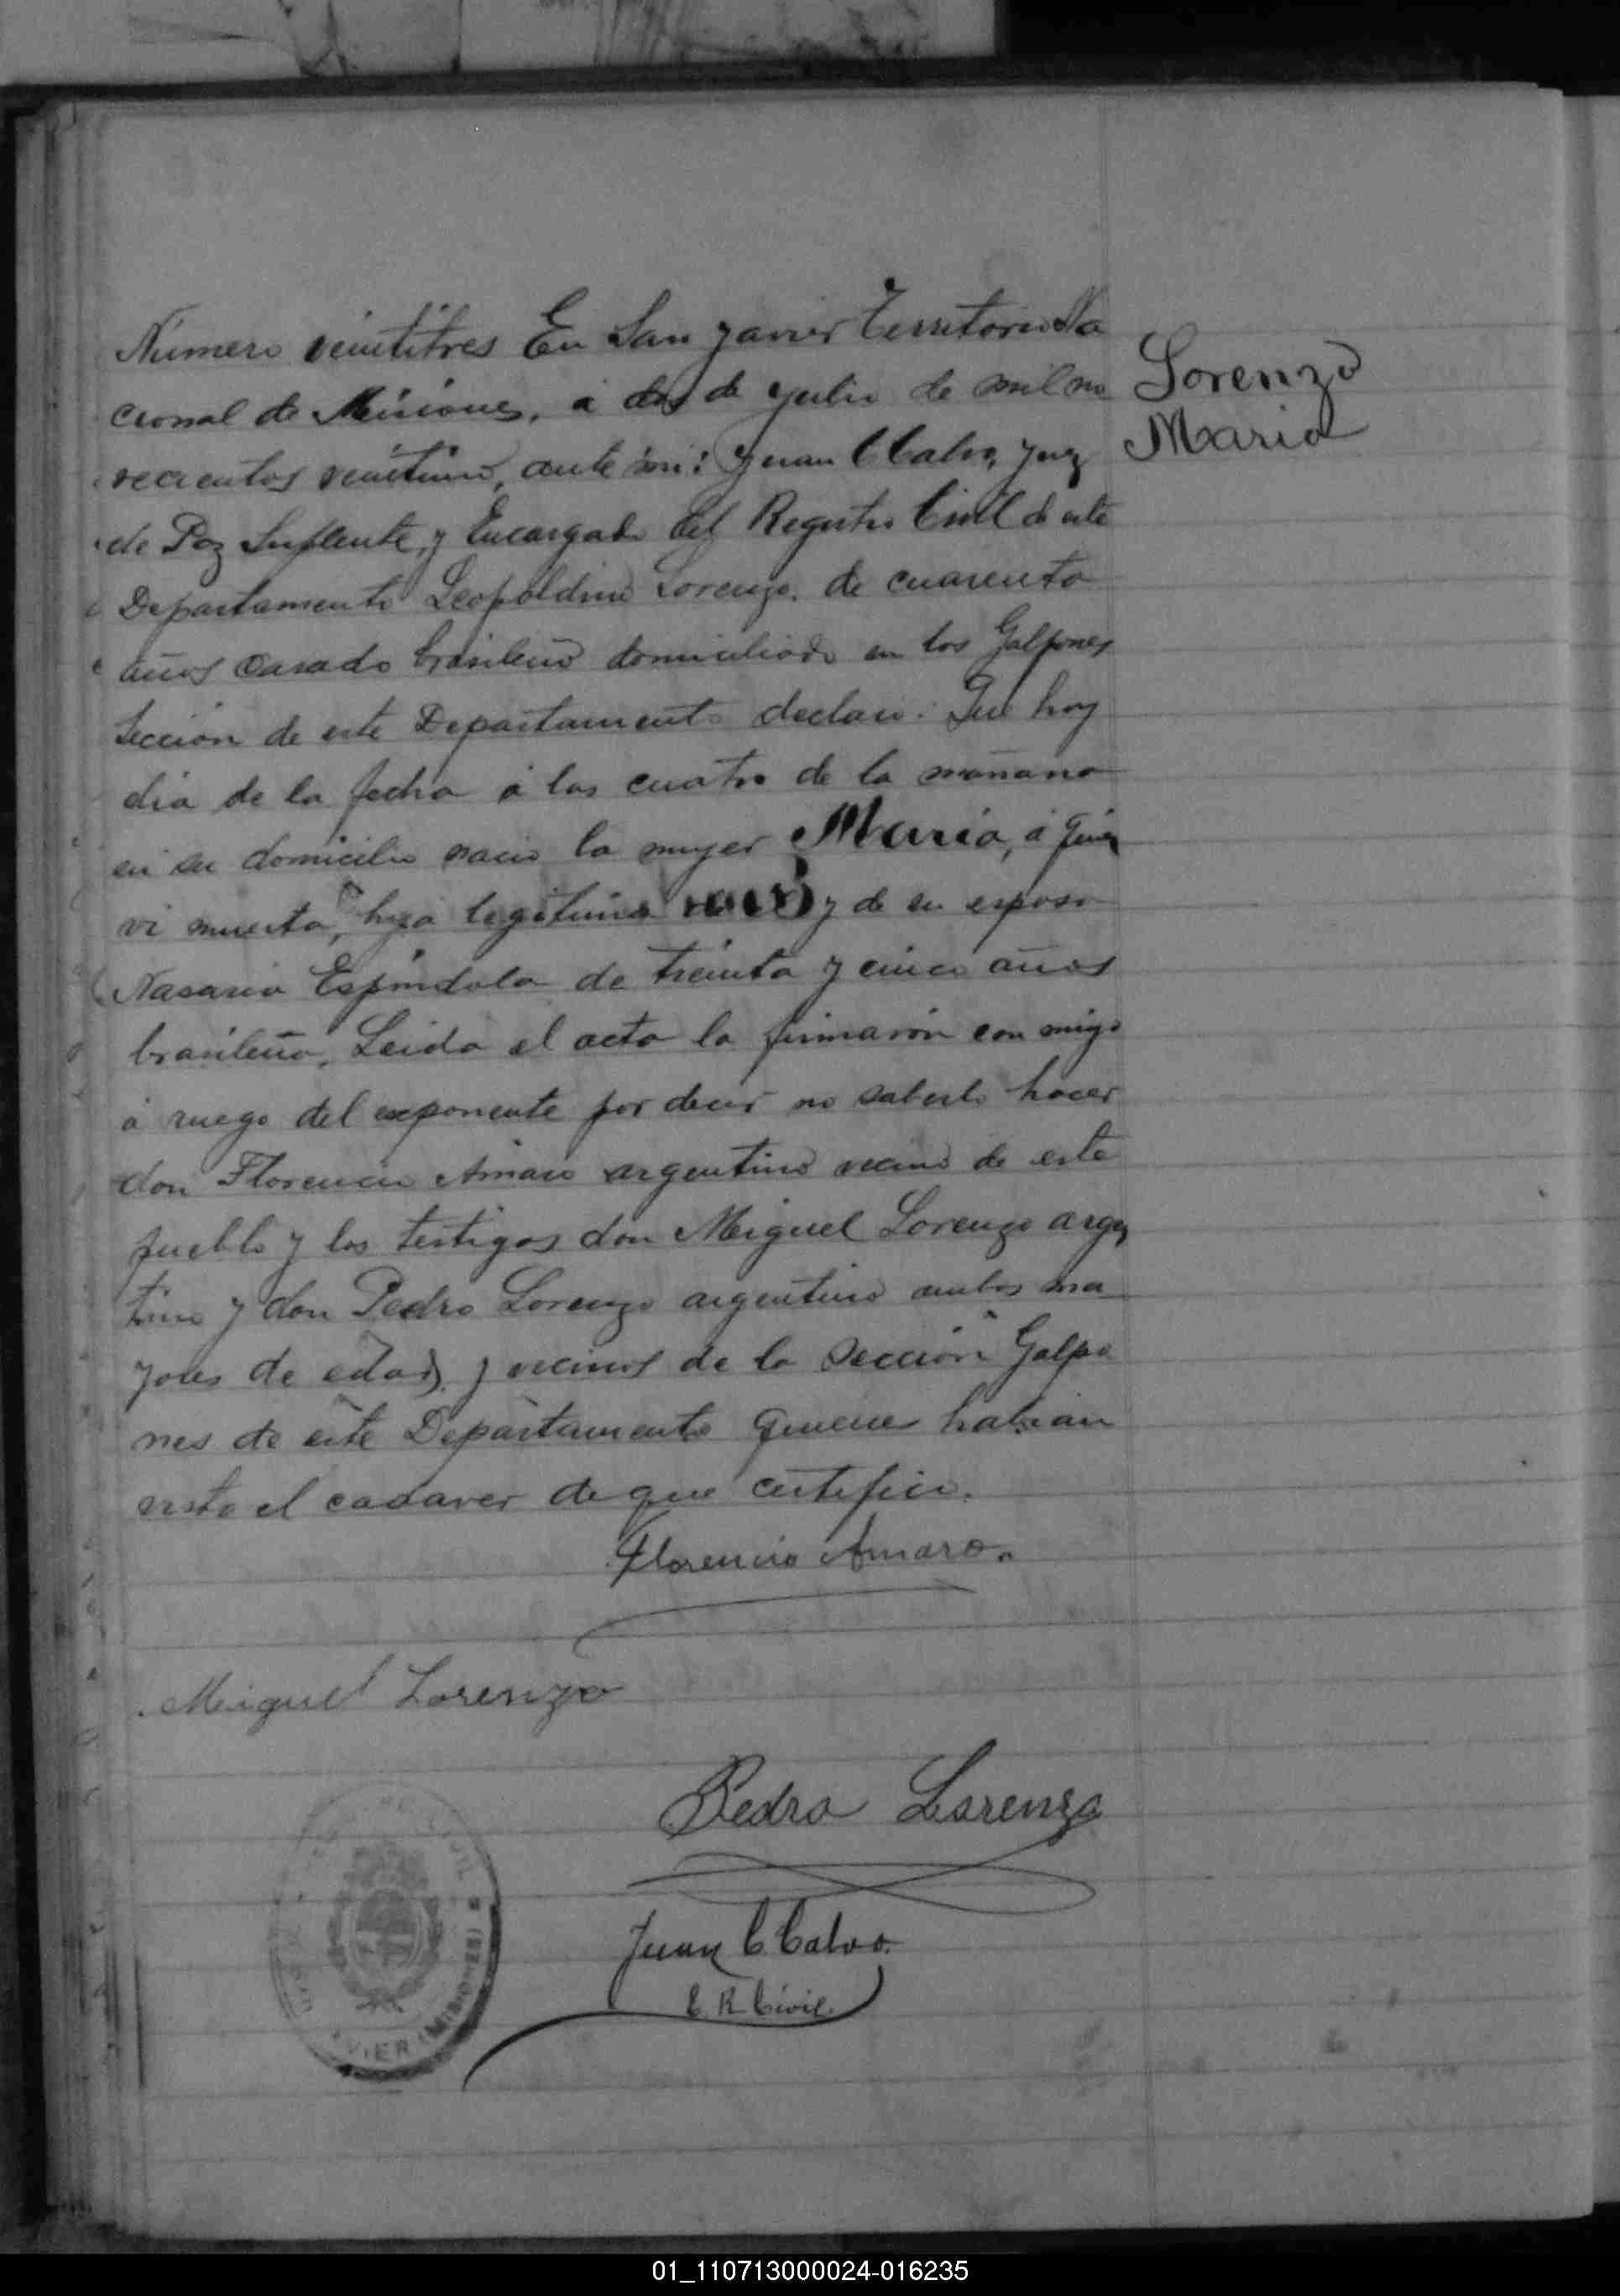 Número veintitres En San Javier Territorio Na
cional de Misiones, á dos de Julio de mil no
vecientos veintiuno, ante mi: Juan C Calvo, Juez
de Paz Suplente, y Encargado del Registro Civil de este
Departamento Leopoldino Lorenzo, de cuarenta
años casado brasileño domiciliado en los Galpones
Sección de este Departamento declaro: Que hoy
dia de la fecha á las cuatro de la mañana
en su domicilio nacio la mujer Maria, á quien
vi muerta, hija legitima y de su esposa
Nasaria Espindola de treinta y cinco años
brasileña, Leida el acta la firmarón con migo
á ruego del exponente por decir no saberlo hacer
don Florencio Amaro argentino vecino de este
pueblo y los testigos don Miguel Lorenzo argen
tino y don Pedro Lorenzo argentino ambos ma
yores de edad, y vecinos de la Sección Galpo
nes de este Departamento quienes habian
visto el cadaver de que certifico.
Lorenzo
Maria
Florencio Amaro.
Miguel Lorenzo
Pedro Lorenzo
Juan C Calvo.
E. R. Civil.
CIVIL
VIER (MISIONES)
01_110713000024-016235